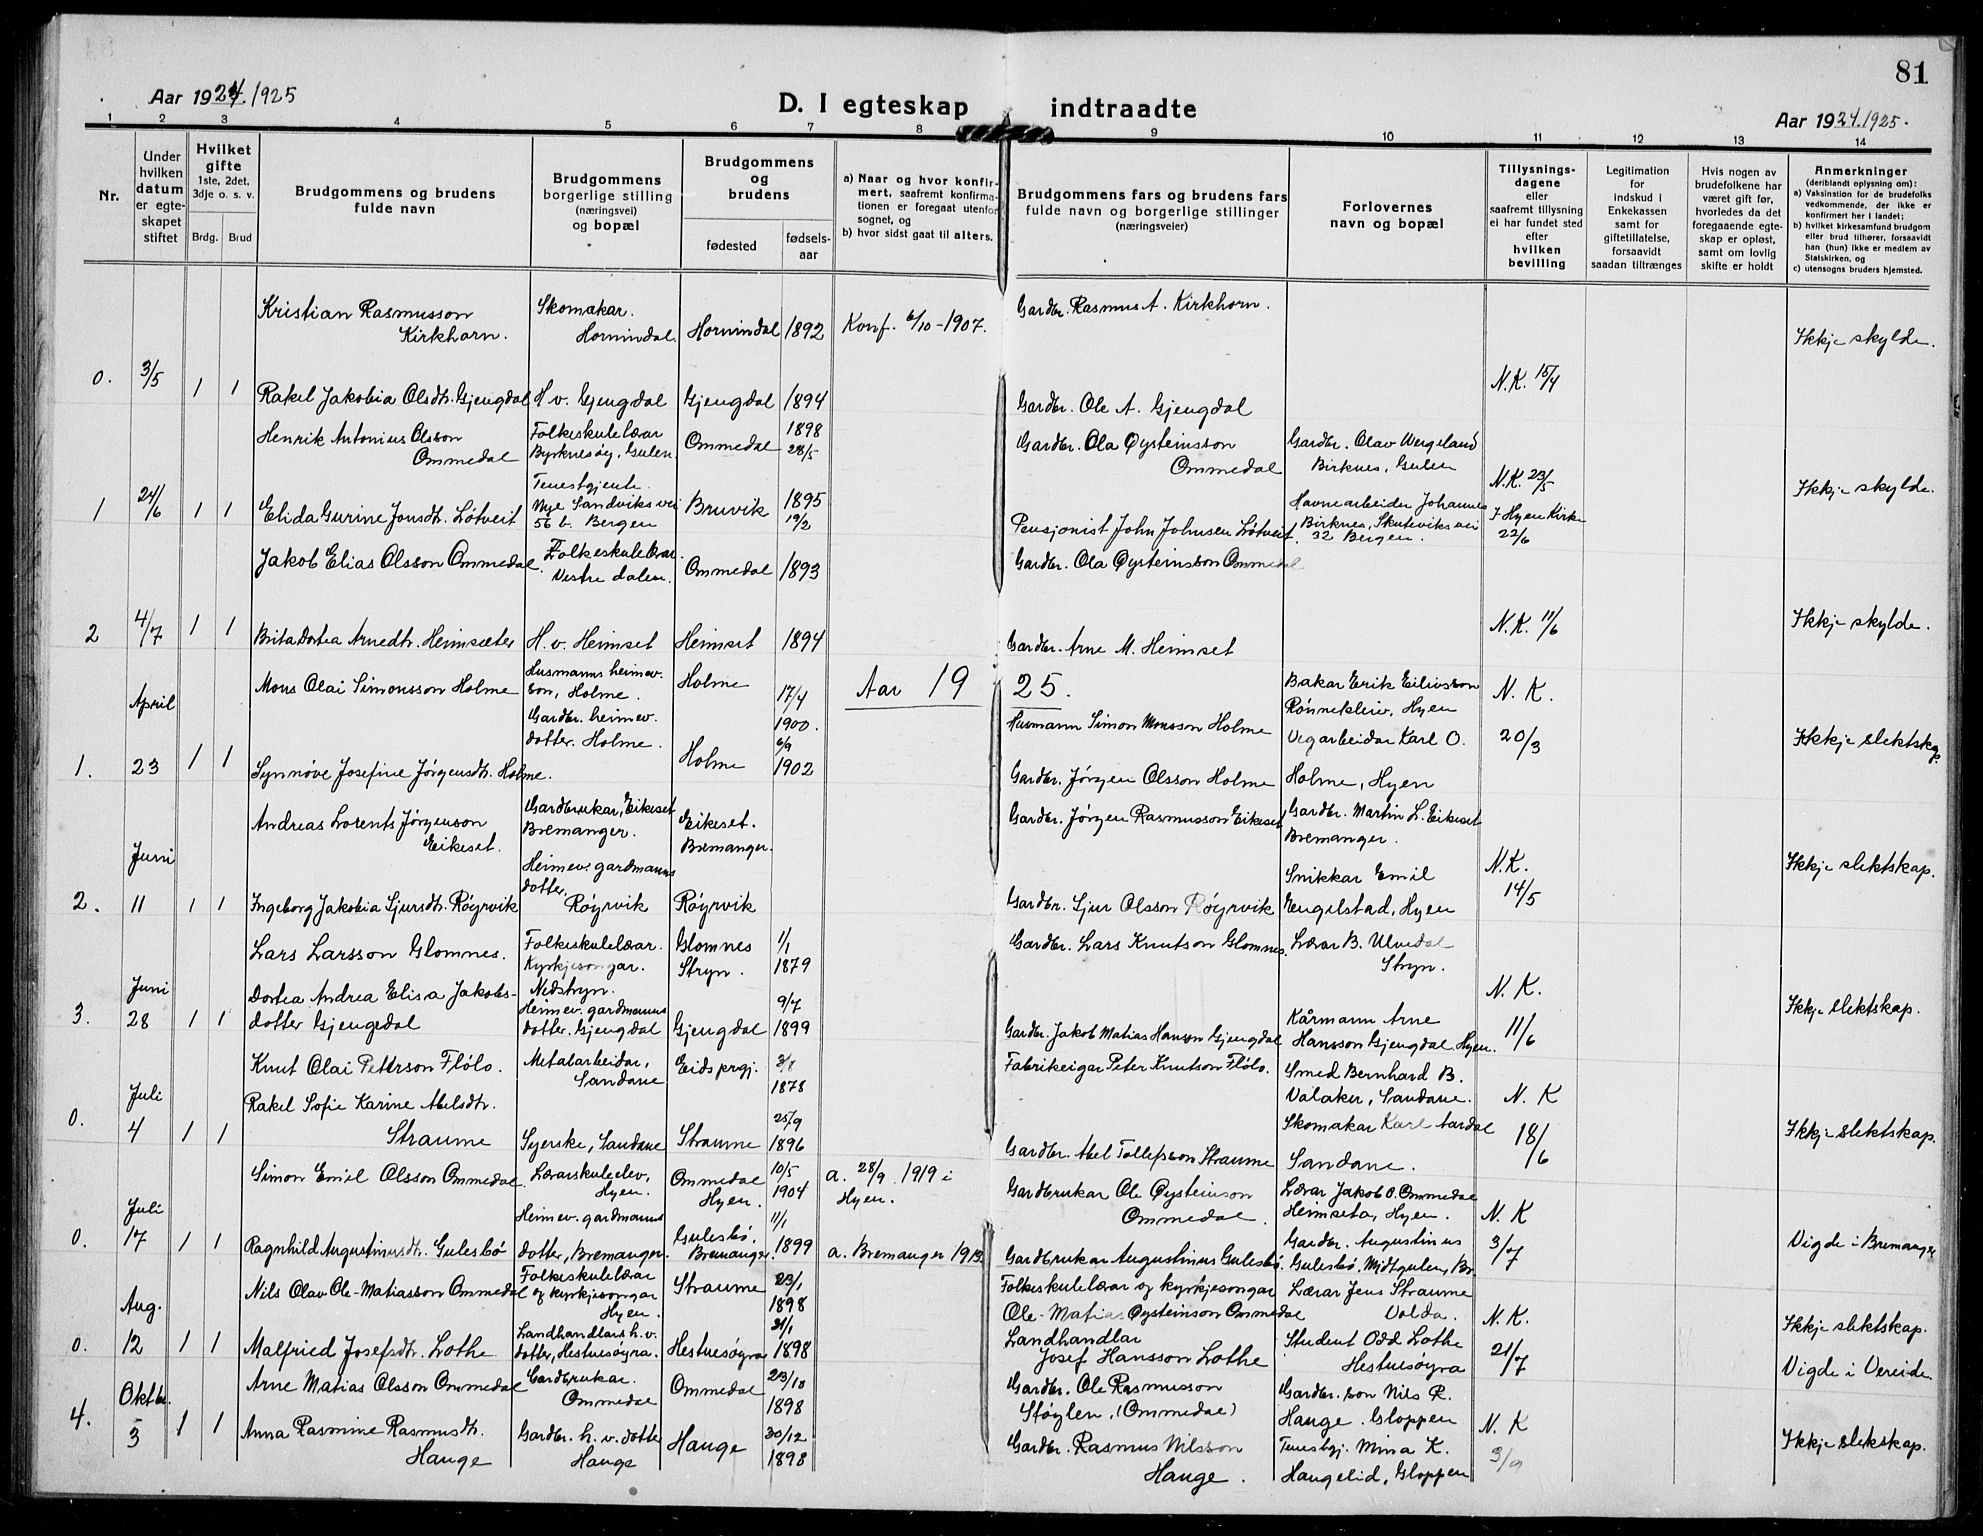 81
Aar 1924. 1925
D. I egteskap indtraadte
Aar 1924. 1925.
1 2 3 4 5 6 7 8 9 10 11 12 13 14
Nr.
Under hvilken datum er egteskapet stiftet
Hvilket gifte
1ste, 2det, 3dje o. s. v.
Brdg. Brud
Brudgommens og brudens fulde navn
Brudgommens borgerlige stilling (næringsvei) og bopæl
Brudgommens og brudens
fødested
fødselsaar
a) Naar og hvor konfirmert, saafremt konfirmationen er foregaat utenfor sognet, og
b) hvor sidst gaat til alters.
Brudgommens fars og brudens fars fulde navn og borgerlige stillinger (næringsveier)
Forlovernes navn og bopæl
Tillysningsdagene eller saafremt tillysning ei har fundet sted efter hvilken bevilling
Legitimation for indskud i Enkekassen samt for giftetillatelse, forsaavidt saadan tiltrænges
Hvis nogen av brudefolkene har været gift før, hvorledes da det foregaaende egteskap er opløst, samt om lovlig skifte er holdt
Anmerkninger
(deriblandt oplysning om):
a) Vaksination for de brudefolks vedkommende, der ikke er konfirmert her i landet;
b) hvilket kirkesamfund brudgom eller brud tilhører, forsaavidt han (hun) ikke er medlem av Statskirken, og
c) utensogns bruders hjemsted.
Kristian Rasmusson Kirkhorn. Skomakar. Hornindal. Hornindal 1892 Konf. 6/10 - 1907. Gardbr. Rasmus A. Kirkhorn. Ikkje skylde.
0. 3/5 1 1 N.K. 15/4
Rakel Jakobia Olsdtr. Gjengdal H. v. Gjengdal Gjengdal 1894 Gardbr. Ole A. Gjengdal
Henrik Antonius Olsson Ommedal Folkeskulelærar Byrknesøy, Gulen. Ommedal 1898 28/5 Gardbr. Ola Øysteinsson Ommedal Gardbr. Olav Wergeland Birknes, Gulen N.K. 23/5 Ikkje skylde.
1 24/6 1 1 Elida Gurine Jonsdtr. Løtveit Tenestgjente Nye Sandviksvei 56 b. Bergen Bruvik 1895 19/2 Pensjonist John Johnsen Løtveit. Havnearbeider Johannes Birknes, Skuteviksvei 32 Bergen. I Hyen Kirke 22/6
Jakob Elias Olsson Ommedal Folkeskulelærar. Vestre dalen. Ommedal 1893 Gardbr. Ola Øysteinsson Ommedal
2 4/7 1 1 Brita Dortea Arnedtr. Heimsæter H. v. Heimset Heimset 1894 Gardbr. Arne M. Heimset N.K. 11/6 Ikkje skylde.
Aar 19 25.
Mons Olai Simonsson Holme Husmanns heimev. son, Holme. Holme 17/4 1900. Husmann Simon Monsson Holme Bakar Erik Eilivsson Rønnekleiv, Hyen N. K.
1. April 23 1 1 Synnøve Josefine Jørgensdtr. Holme. Gardbr. heimev. dotter. Holme. Holme 6/9 1902 Gardbr. Jørgen Olsson Holme Vegarbeidar Karl O. Holme, Hyen 20/3 Ikkje slektskap.
Andreas Lorents Jørgenson Eikeset. Gardbrukar, Eikeset Bremanger. Eikeset. Bremanger. Gardbr. Jørgen Rasmusson Eikeset, Gardbr. Martin L. Eikeset Bremanger.
2. Juni 11 1 1 Ingeborg Jakobia Sjursdtr. Røyrvik Heimev. gardmanns dotter, Røyrvik Røyrvik Gardbr. Sjur Olsson Røyrvik Snikkar Emil Engelstad, Hyen N.K. 14/5 Ikkje slektskap.
Lars Larsson Glomnes. Folkeskulelærar. Kyrkjesongar. Nedstryn. Glomnes Stryn. 1/1 1879 Gardbr. Lars Knutson Glomnes. Lærar B. Ulvedal Stryn.
3. Juni 28 1 1 Dortea Andrea Elisa Jakobsdotter Gjengedal Heimev. gardmanns dotter. Gjengdal Gjengdal 9/7 1899 Gardbr. Jakob Matias Hanson Gjengdal Kårmann Arne Hansson Gjengdal, Hyen. N. K. 11/6 Ikkje slektskap.
Knut Olai Peterson Flólo. Metalarbeidar, Sandane Eids prgj. 3/8 1878 Fabrikeigar Peter Knutson Flólo. Smed Bernhard B. Valaker, Sandane.
0. Juli 4 1 1 Rakel Sofie Karine Abelsdtr. Straume Syerske, Sandane Straume 25/9 1896 Gardbr. Abel Tollefsson Straume Skomakar Karl Aardal Sandane. N. K 18/6 Ikkje slektskap.
Simon Emil Olsson Ommedal. Lærarskuleelev, Hyen. Ommedal Hyen. 10/5 1904 a. 28/9 1919 i Hyen. Gardbrukar Ole Øysteinson Ommedal. Lærar Jakob O. Ommedal Heimseta, Hyen.
0. Juli 17 1 1 Ragnhild Augustinusdtr. Gulesbö Heimev. gardmanns dotter, Bremanger. Gulesbö, Bremanger. 11/1 1899 a. Bremanger 1913. Gardbrukar Augustinus Gulesbö. Gardbr. Augustinus Gulesbö, Midtgulen, Br. N. K 3/7 Vigde i Bremanger
Nils Olav Ole-Matiasson Ommedal Folkeskulelærar og kyrkjesongar Hyen. Straume 23/1 1898 Folkeskulelærar og kyrkjesongar Ole-Matias Øysteinson Ommedal Lærar Jens Straume Volda.
0. Aug. 12 1 1 Malfried Josefsdtr. Lothe Landhandlars h. v. dotter, Hestnesøyra. Hestnesøyra 21/1 1898 Landhandlar Josef Hansson Lothe Student Odd Lothe Hestnesøyra N. K. 21/7 Ikkje slektskap. Vigde i Vereide
Arne Matias Olsson Ommedal Gardbrukar. Ommedal Ommedal 23/10 1898 Gardbr. Ole Rasmusson Støylen, (Ommedal) Gardbr. son Nils R. Hauge. Gloppen
4. Oktbr. 3 1 1 Anna Rasmine Rasmusdtr. Hauge Gardbr. h. v. dotter Hauge Hauge 30/12 1898 Gardbr. Rasmus Nilsson Hauge. Tenestgj. Mina K. Haugelid, Gloppen N. K 3/9 Ikkje slekskap.